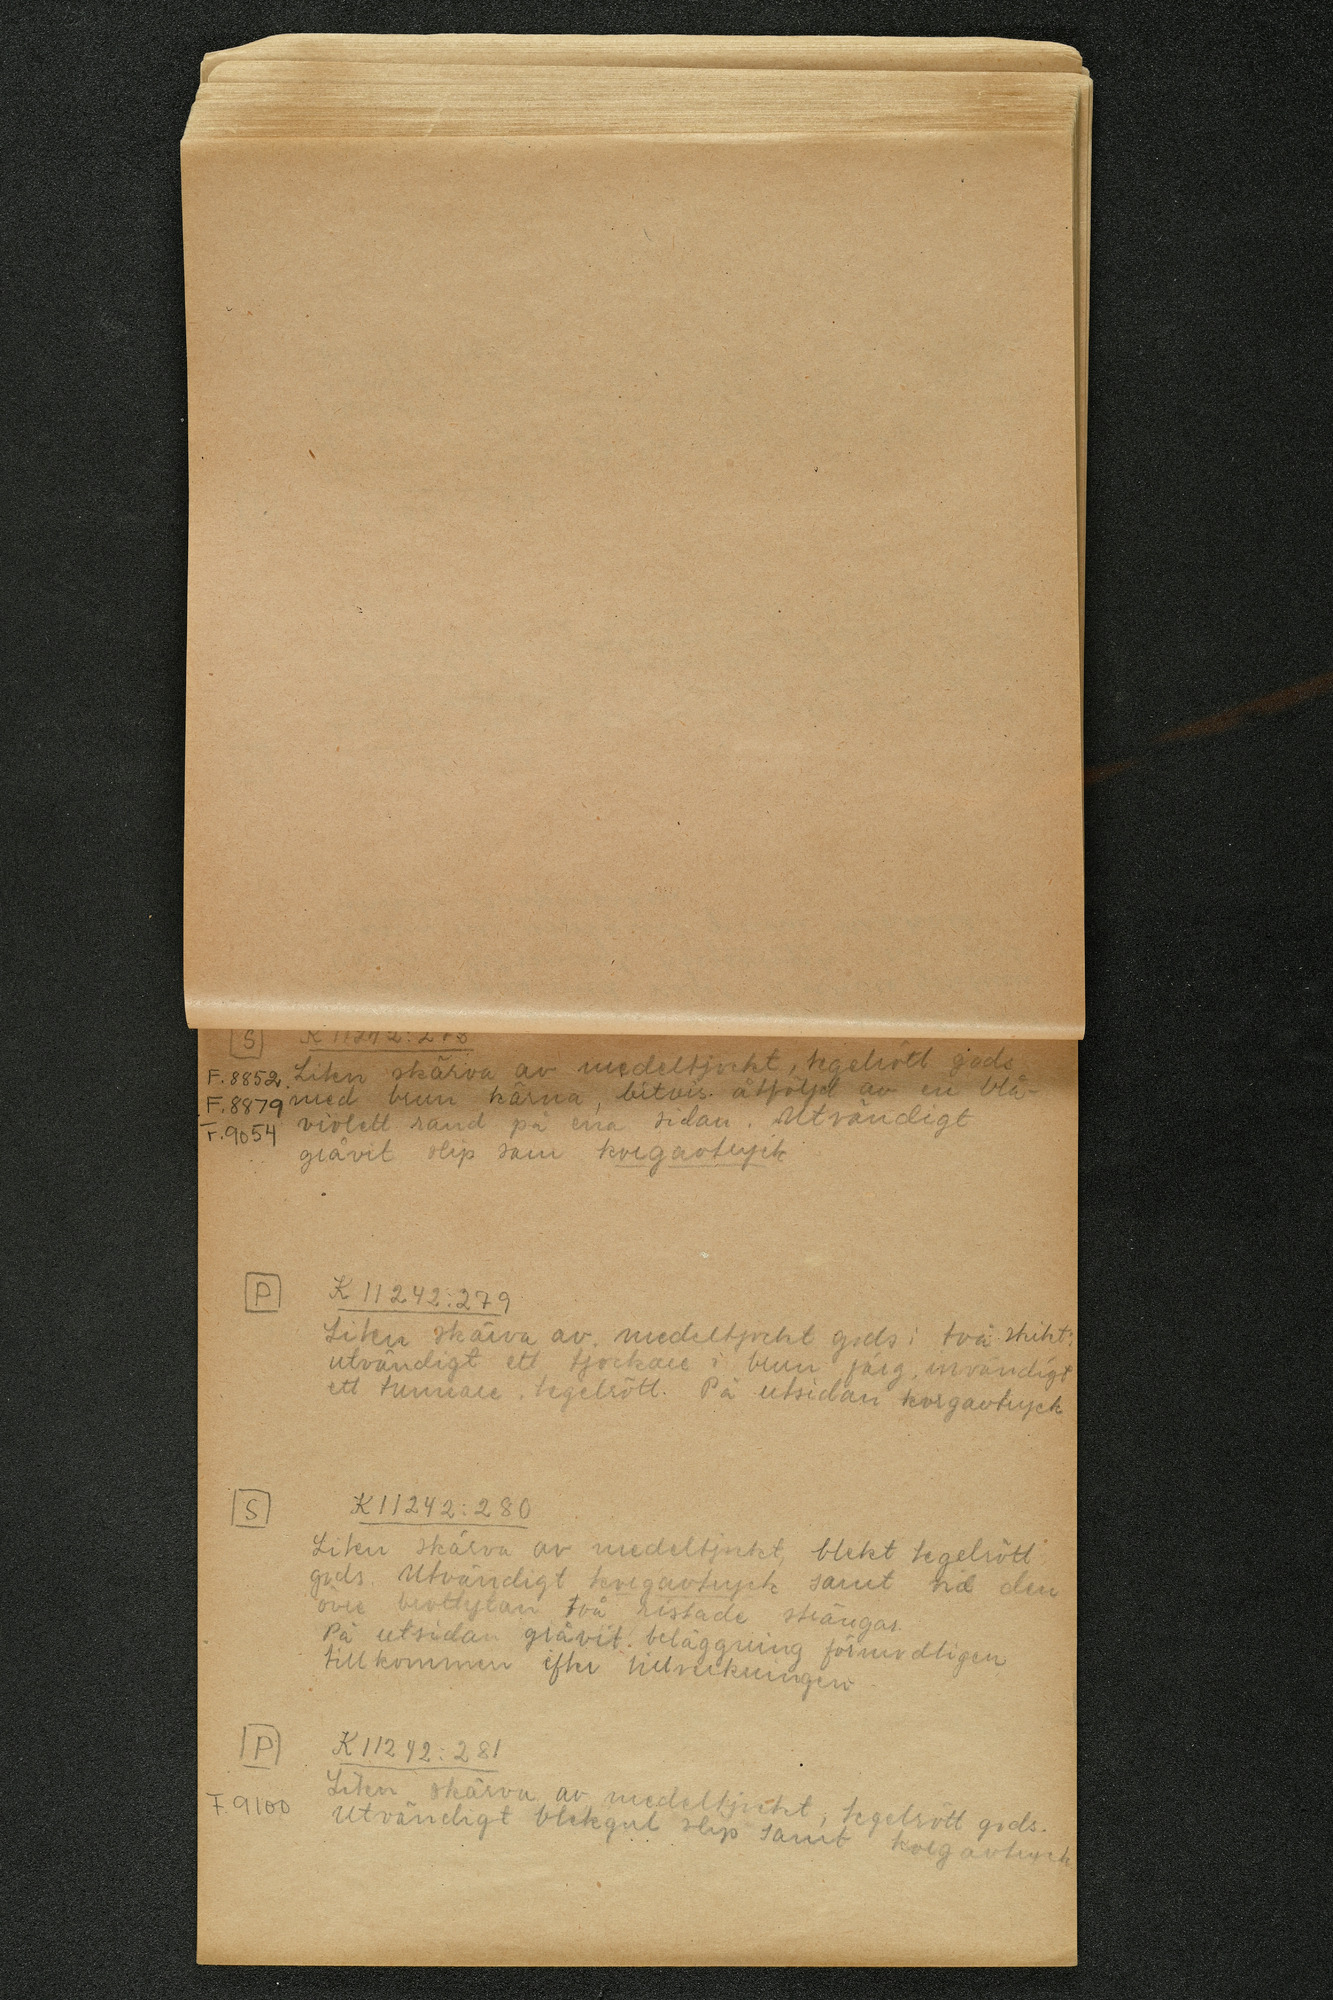 S K 11242:278
F.8852. Liten skärva av medeltjockt, tegelrött gods
F.8879 med brun kärna, bitvis åtföljd av en blå-
F.9054 violett rand på ena sidan. Utvändigt
gråvit slip som korgavtryck
P K 11242:279
Liten skärva av medeltjockt gods i två skikt:
utvändigt ett tjockare i brun färg, invändigt
ett tunnare, tegelrött. På utsidan korgavtryck
S K11242:280
Liten skärva av medeltjockt, blekt tegelrött
gods. Utvändigt korgavtryck samt vid den
övre brottytan två ristade strängar.
På utsidan gråvit beläggning förmodligen
tillkommen efter tillverkningen
P K11242:281
Liten skärva av medeltjockt, tegelrött gods.
F.9100 Utvändigt blekgul slip samt korgavtryck